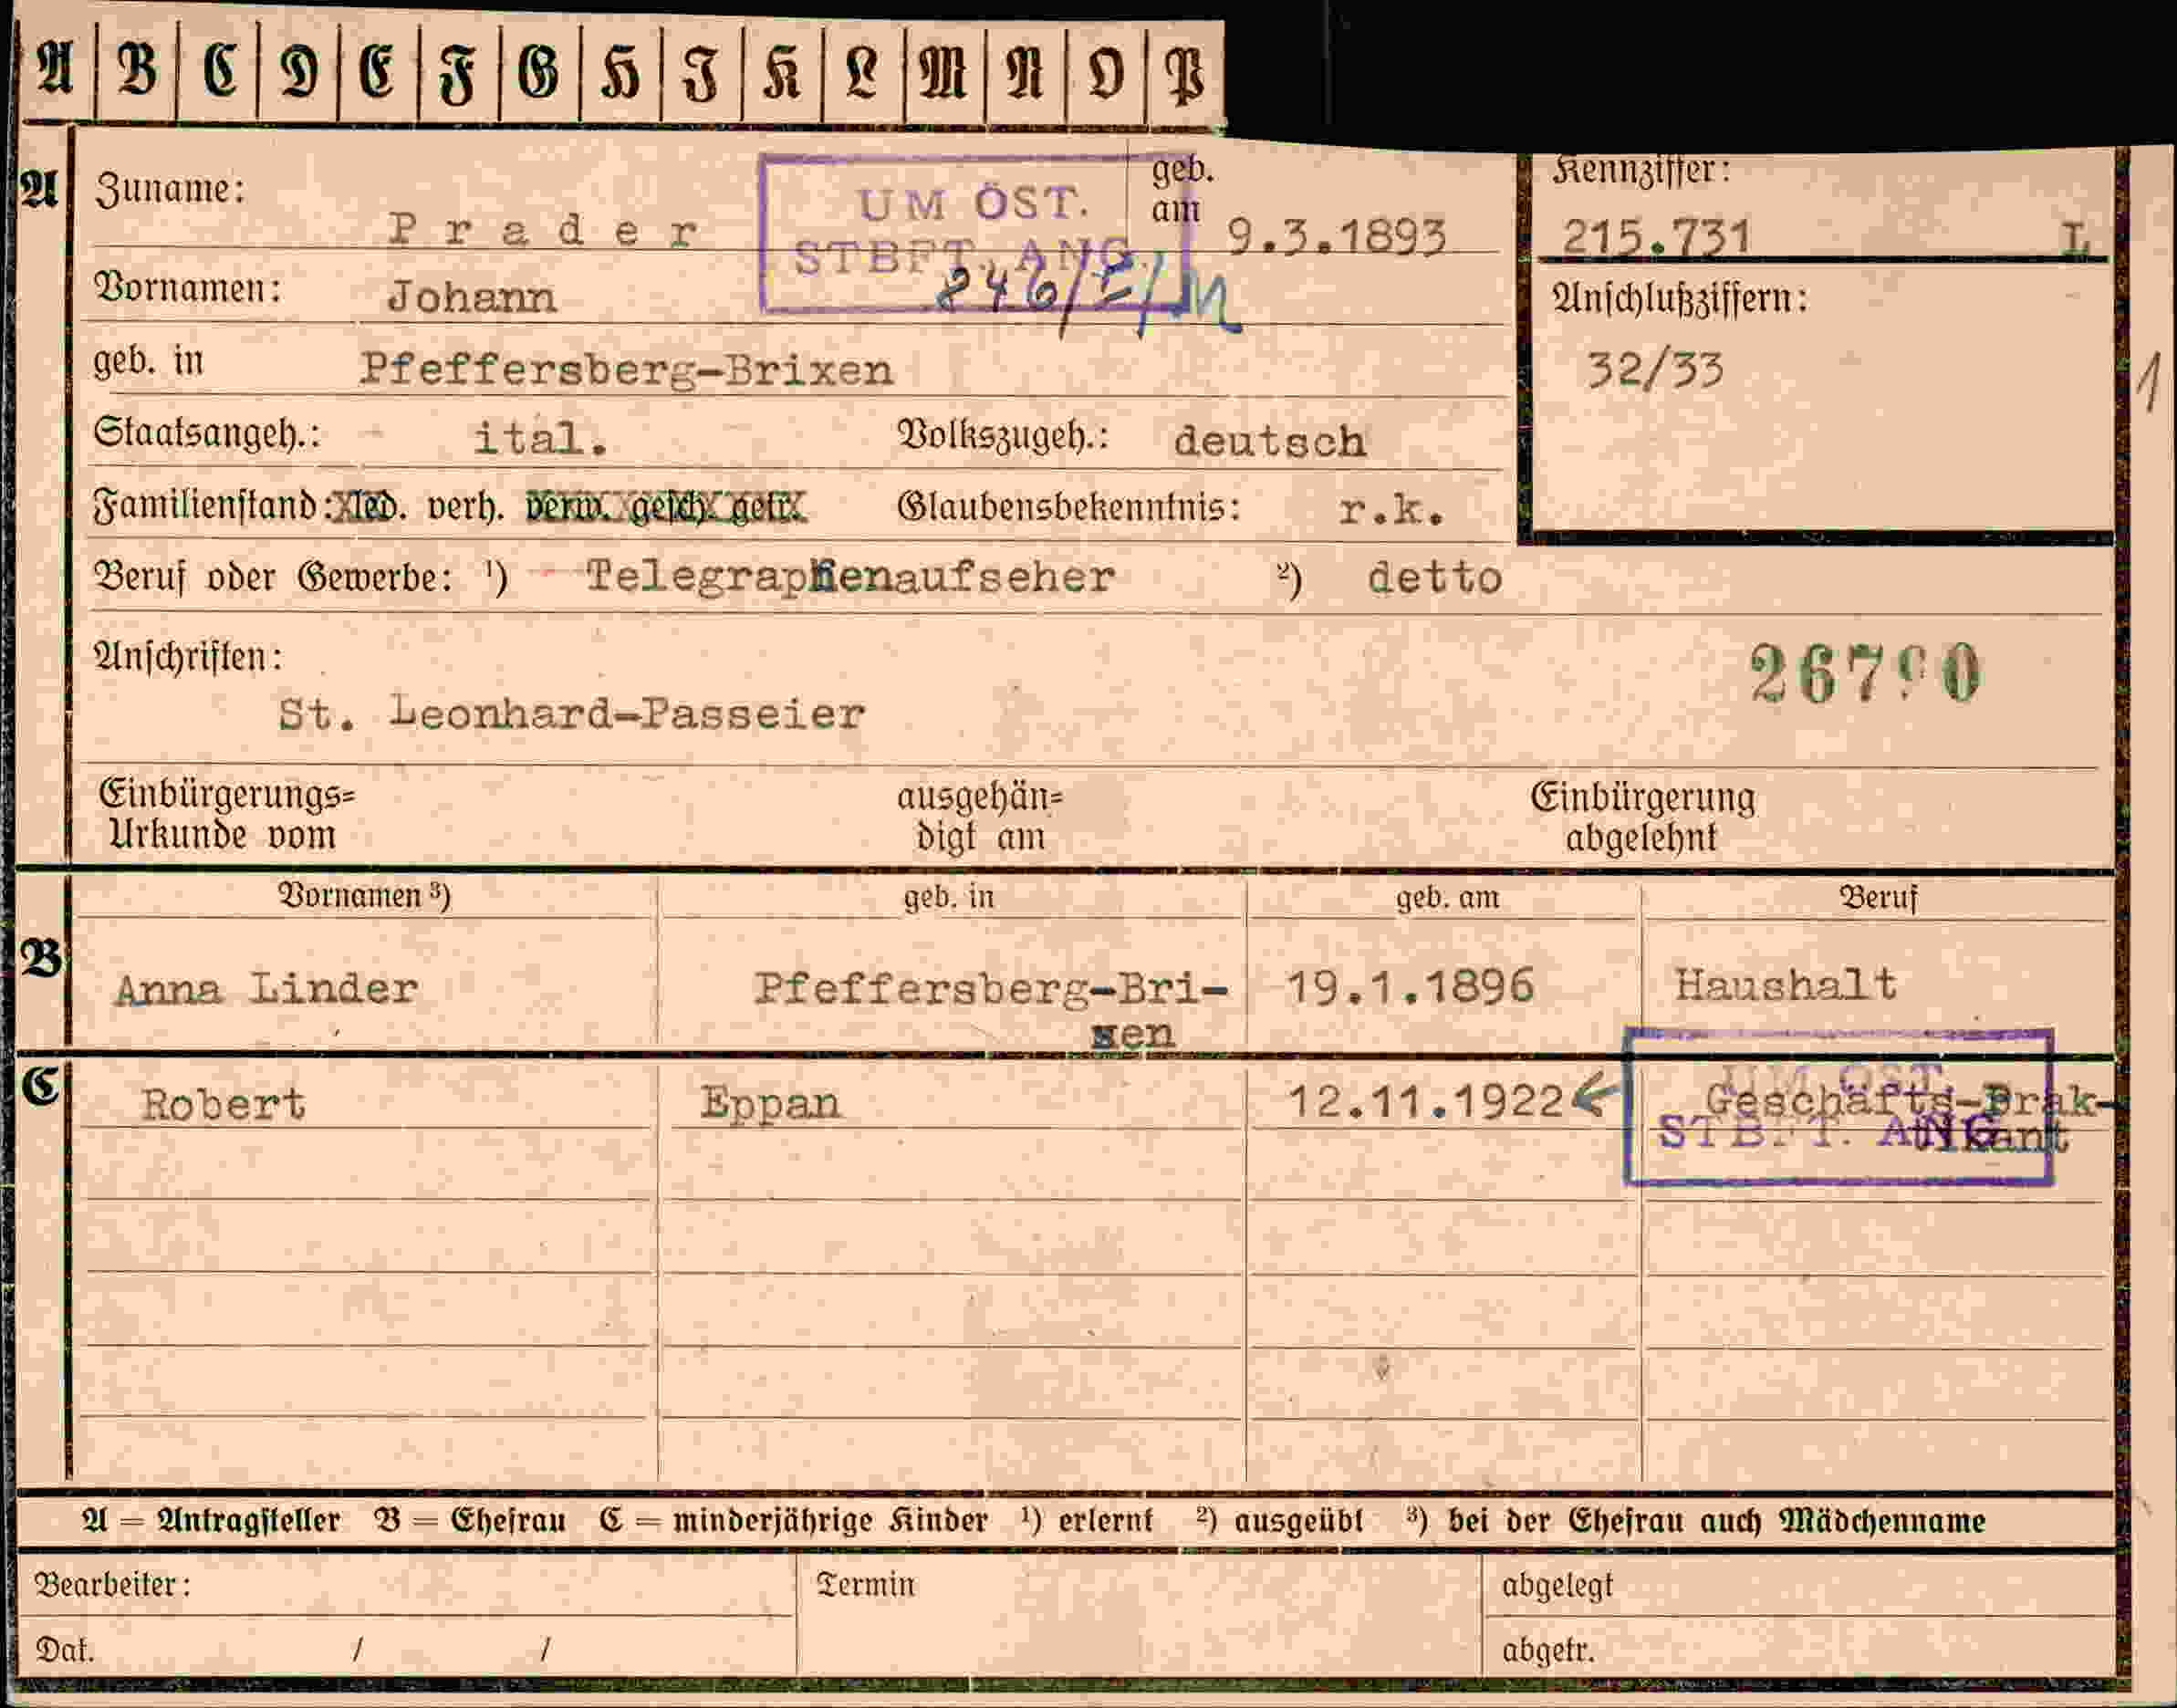 A B C D E F G H I K L M N O P
A Zuname: P r a d e r geb. am 9.3.1893
UM ÖST.
STBFT. ANG.
Kennziffer:
215.731 L
Vornamen: Johann
Anschlußziffern:
32/33
1
geb. in Pfeffersberg-Brixen
Staatsangeh.: ital. Volkszugeh.: deutsch
Familienstand: led. verh. verw. gesch. getr. Glaubensbekenntnis: r.k.
Beruf oder Gewerbe: ¹) Telegraphenaufseher ²) detto
Anschriften:
26790
St. Leonhard-Passeier
Einbürgerungs= ausgehän= Einbürgerung
Urkunde vom digt am abgelehnt
Vornamen ³) geb. in geb. am Beruf
B Anna Linder Pfeffersberg-Bri- 19.1.1896 Haushalt
xen
C Robert Eppan 12.11.1922 Geschäfts-Prak-
tikant
UM ÖST.
STBFT. ANG.
A = Antragsteller B = Ehefrau C = minderjährige Kinder ¹) erlernt ²) ausgeübt ³) bei der Ehefrau auch Mädchenname
Bearbeiter: Termin abgelegt
Dat. / / abgetr.